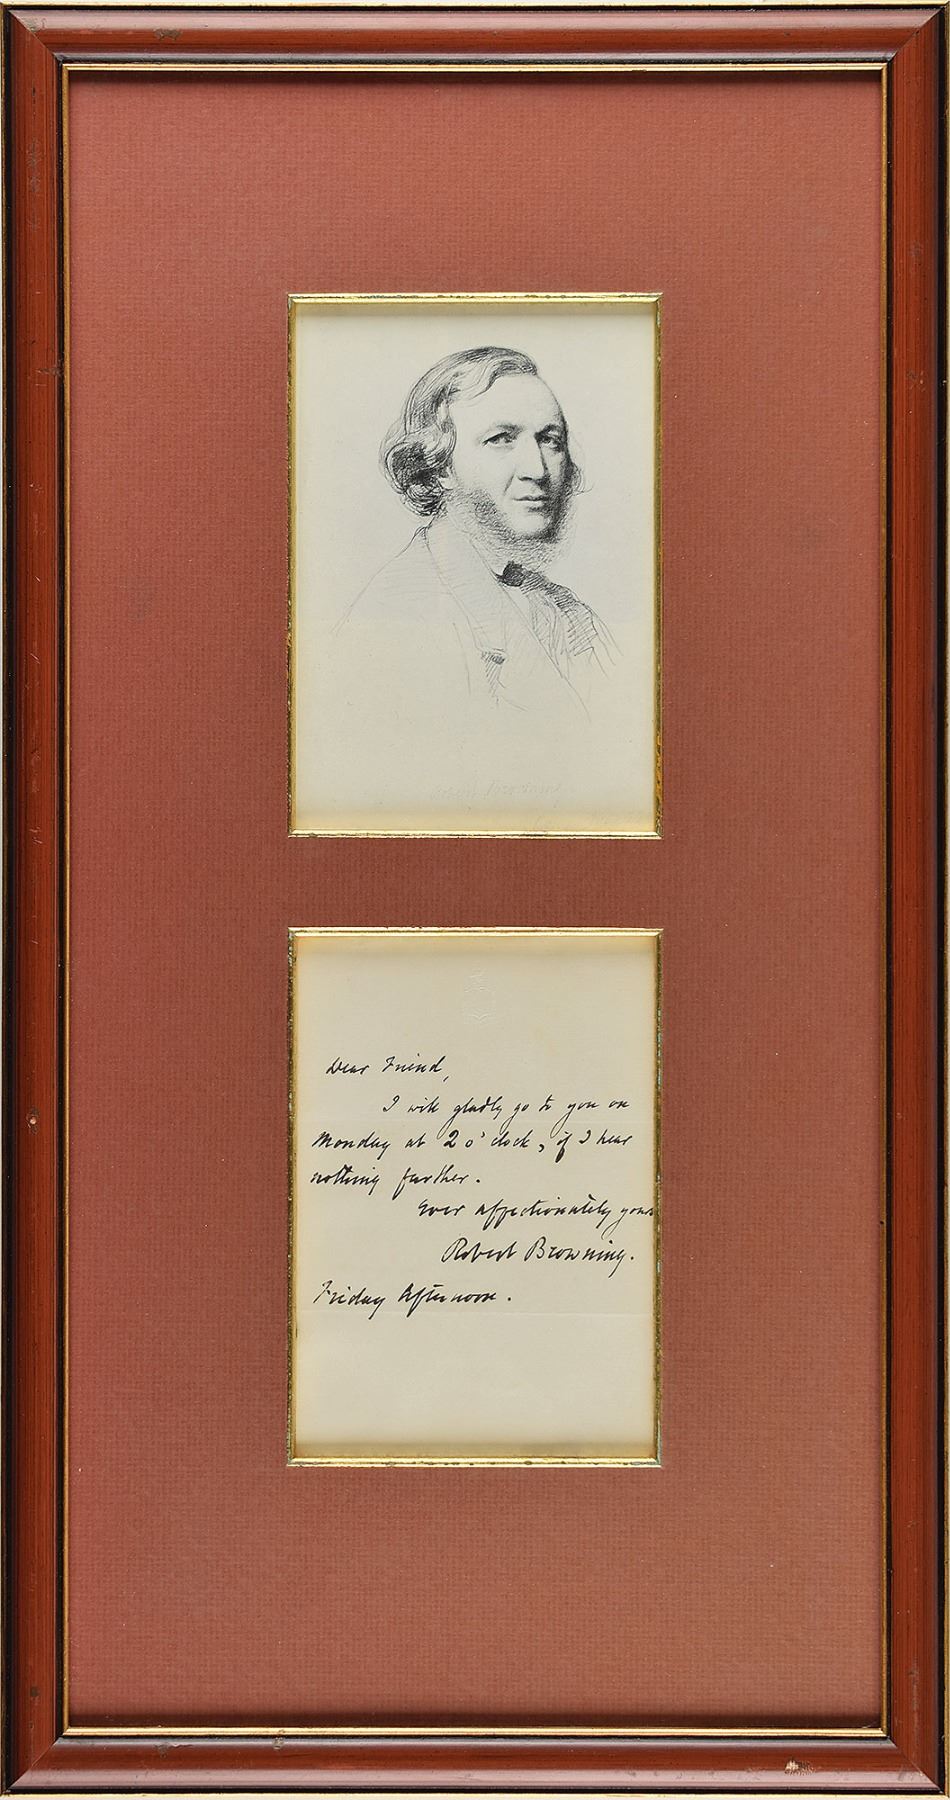 Robert Browning
Dear Friend,
I will gladly go to you on
Monday at 2 o'clock, if I hear
nothing further.
Ever affectionately yours
Robert Browning.
Friday Afternoon.